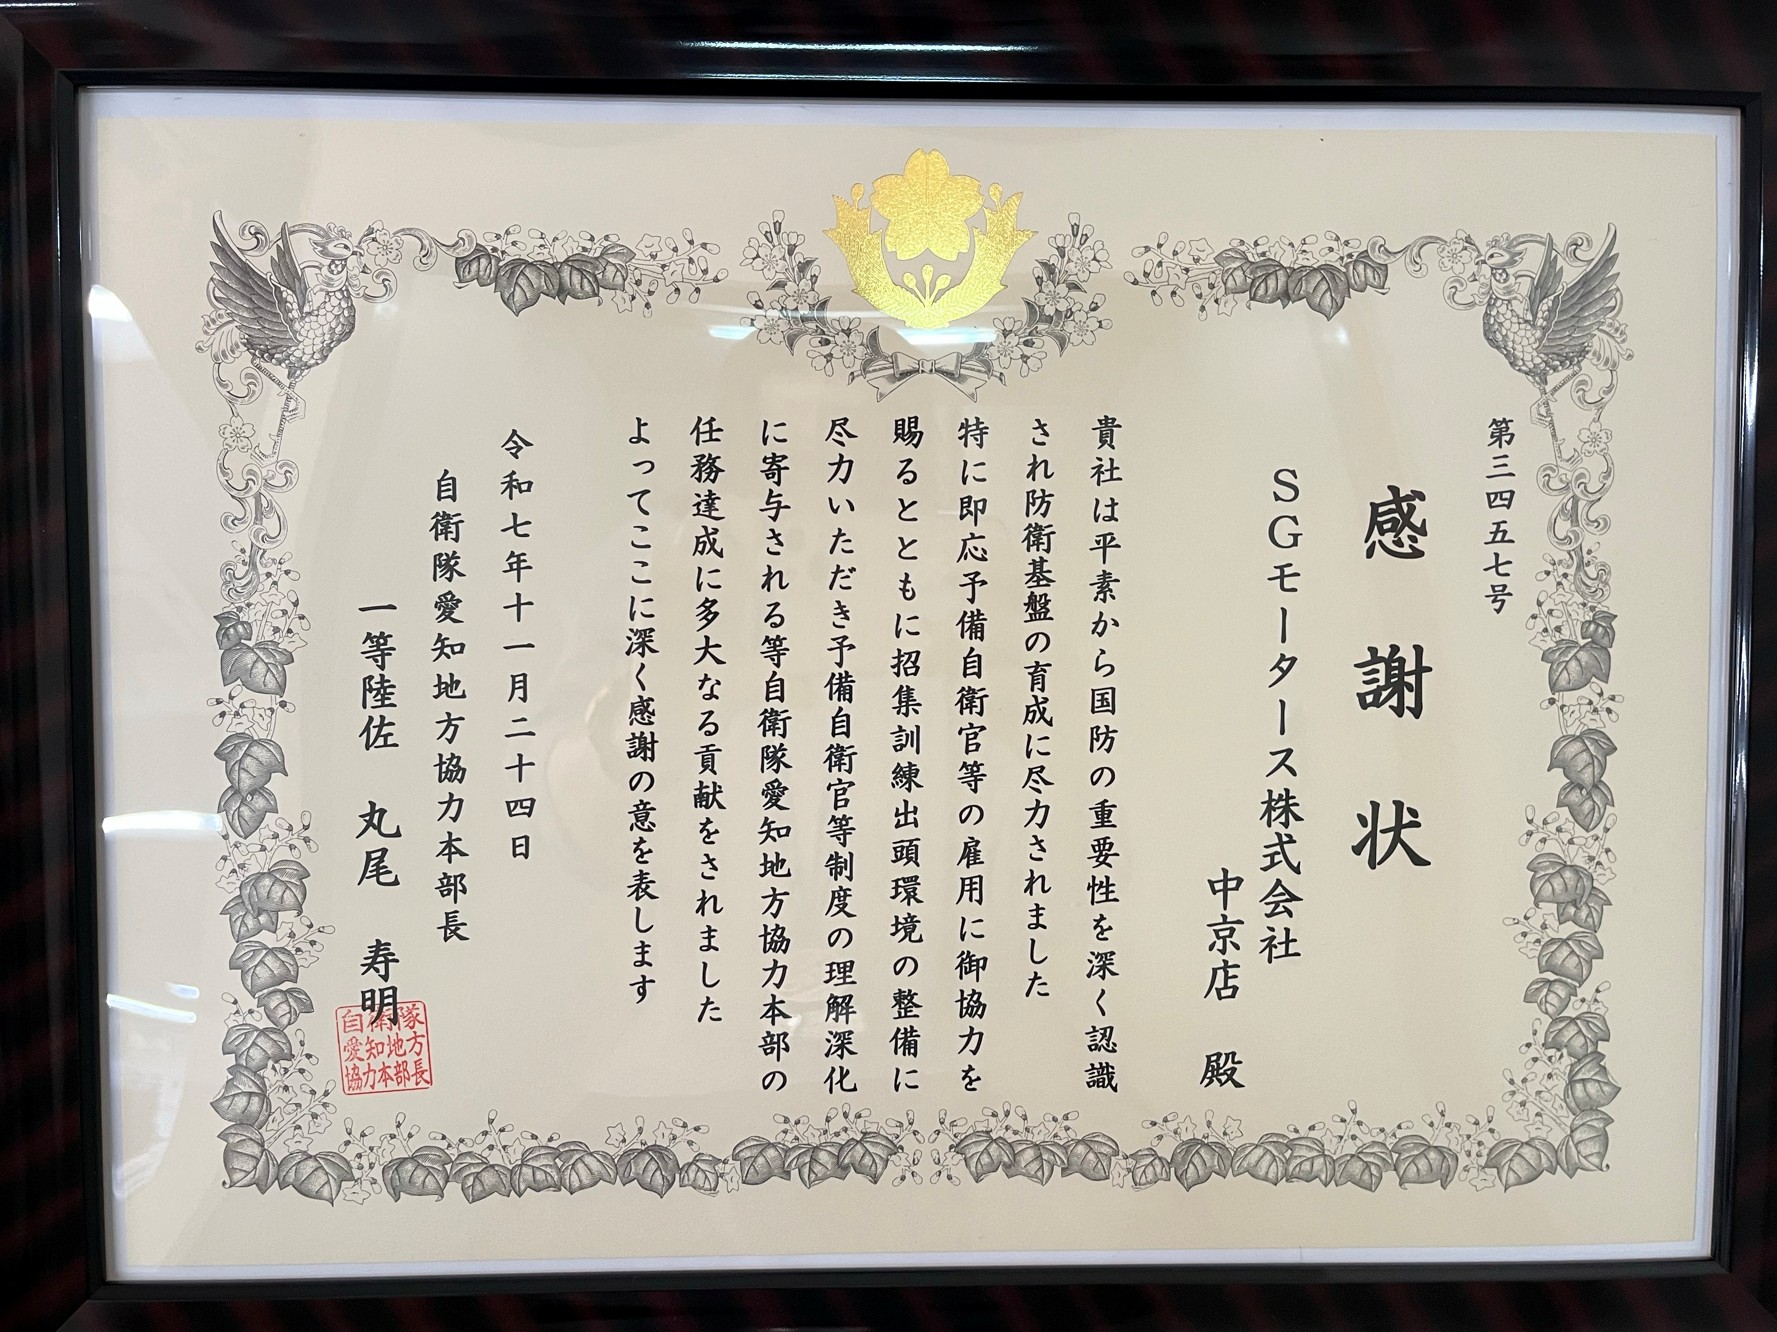 第三四五七号
感謝状
SGモータース株式会社
中京店 殿
貴社は平素から国防の重要性を深く認識
され防衛基盤の育成に尽力されました
特に即応予備自衛官等の雇用に御協力を
賜るとともに招集訓練出頭環境の整備に
尽力いただき予備自衛官等制度の理解深化
に寄与される等自衛隊愛知地方協力本部の
任務達成に多大なる貢献をされました
よってここに深く感謝の意を表します
令和七年十一月二十四日
自衛隊愛知地方協力本部長
一等陸佐 丸尾 寿明
自衛隊
愛知地方
協力本部長